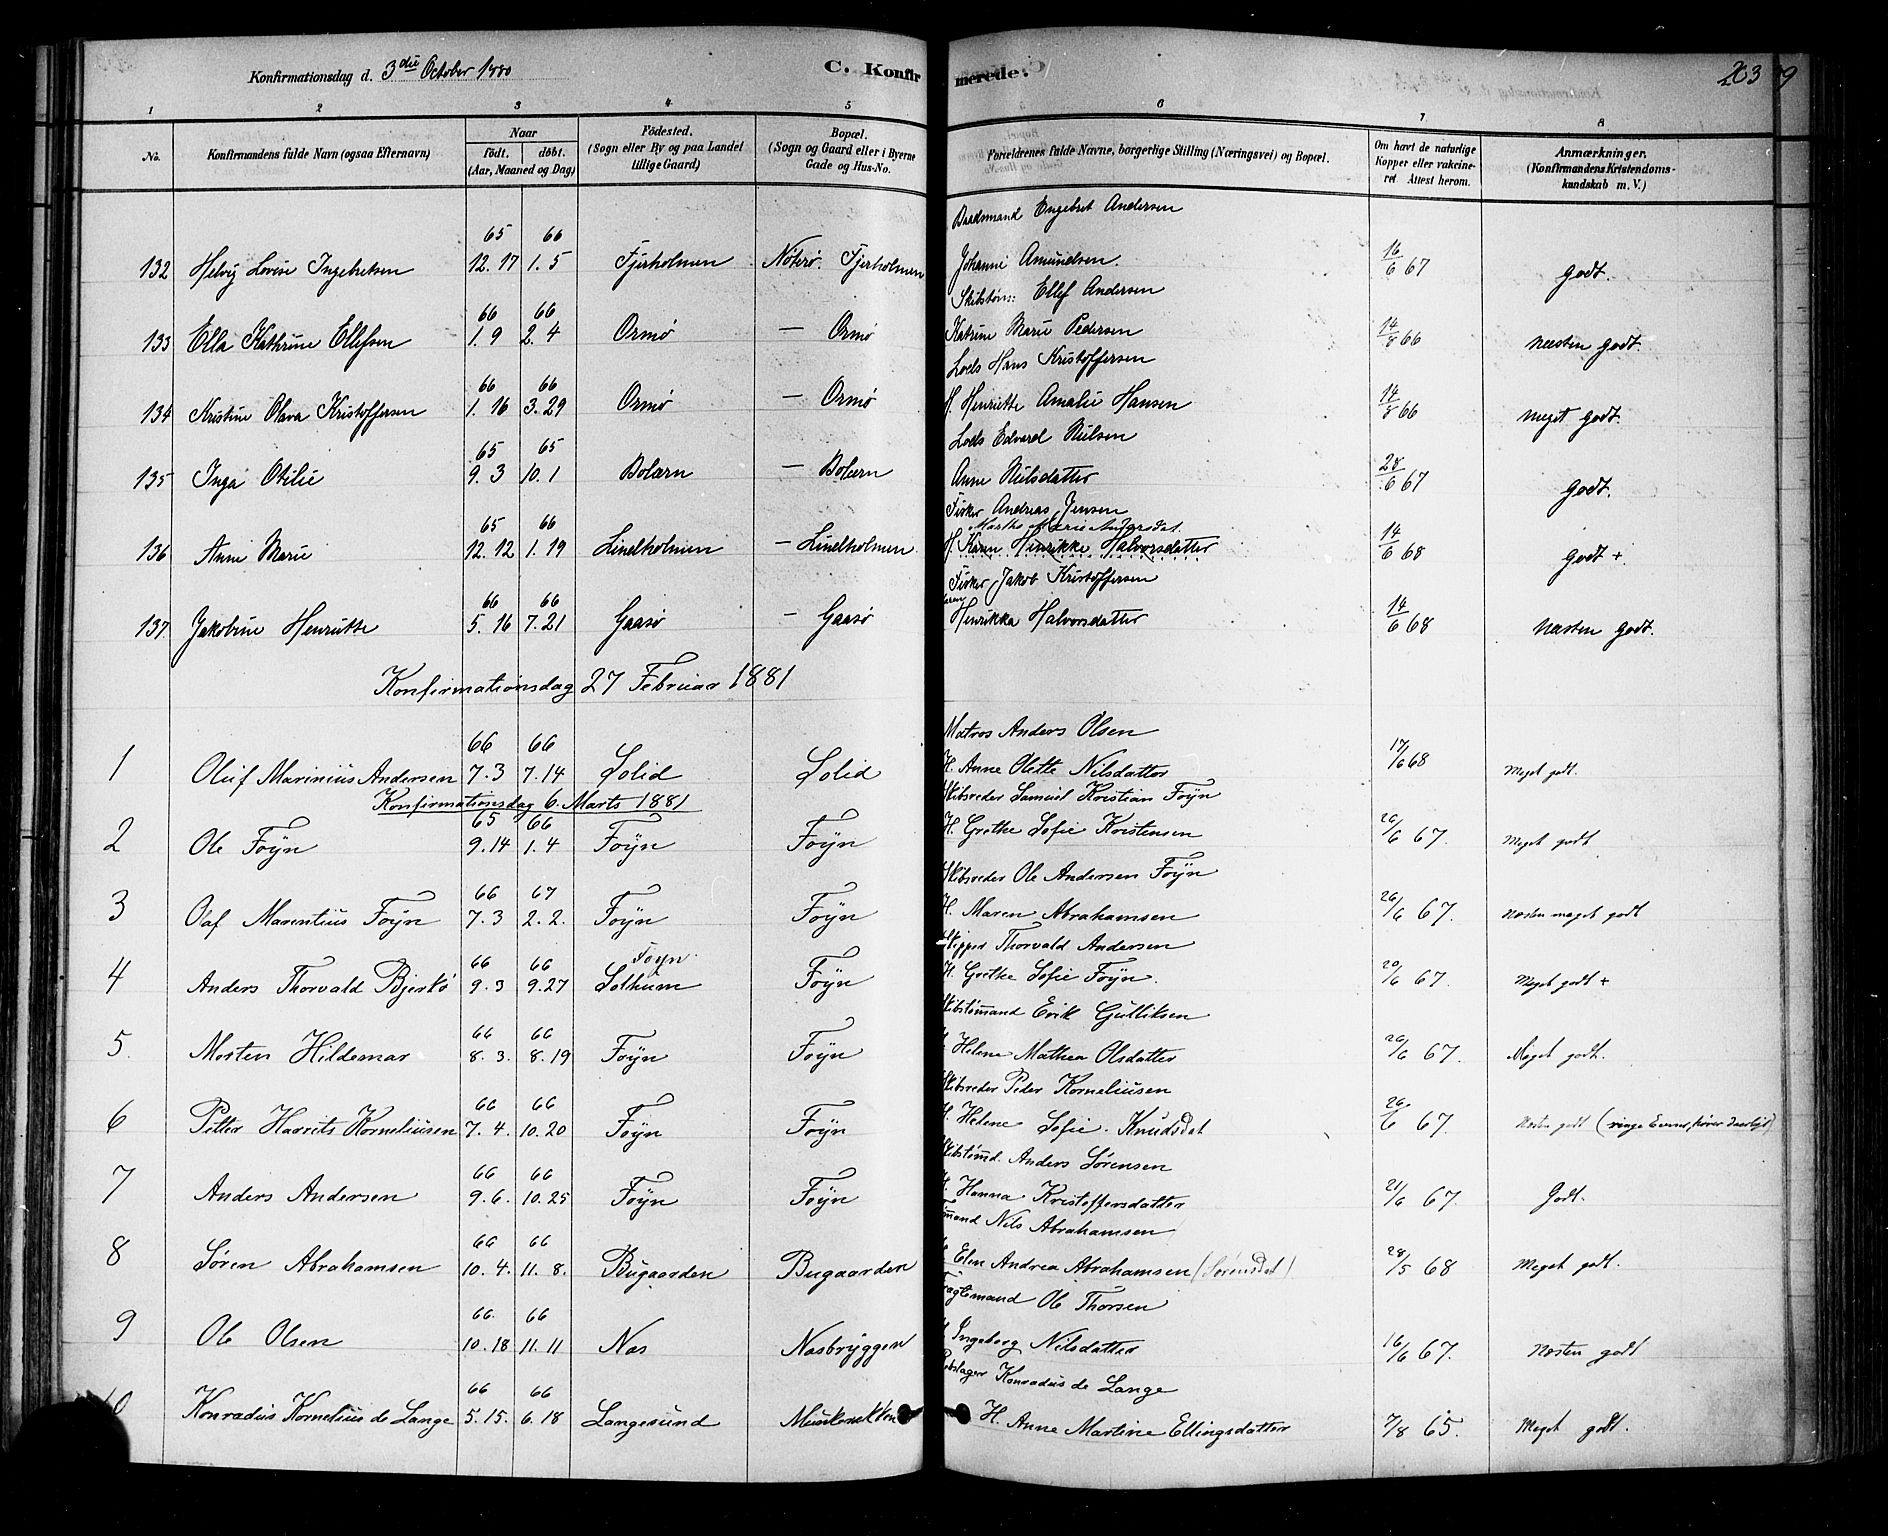 Konfirmationsdag d. 3die October 1880 C. Konfir merede. 203
1 2 3 4 5 6 7 8
No. Konfirmandens fulde Navn (ogsaa Efternavn) Naar født. døbt. (Aar, Maaned og Dag) Fødested. (Sogn eller By og paa Landet tillige Gaard) Bopæl. (Sogn og Gaard eller i Byerne Gade og Hus-No. Forældrenes fulde Navne, borgerlige Stilling (Næringsvei) og Bopæl. Om havt de naturlige Kopper eller vakcineret Attest herom. Anmærkninger. (Konfirmandens Kristendomskundskab m. V.)
Baadsmand Engebret Andersen
65 66
132 Helvig Lovise Ingebretsen 12. 17 1. 5 Fjerholmen Nøterø. Fjerholmen Johanne Amundsen. 16/6 67 Godt.
Skibstøm: Ellef Andersen
66 66
133 Ella Kathrine Ellefsen 1. 9 2. 4 Ormø — Ormø Katrine Marie Pedersen 14/8 66 næsten godt.
Lods Hans Kristoffersen
66 66
134 Kristine Olava Kristoffersen 1. 16 3. 29 Ormø — Ormø H. Henriette Amalie Hansen 14/8 66 meget godt.
Lods Edvard Nilsen
65 65
135 Inga Otilie 9. 3 10. 1 Bolærn — Bolærn Anne Nilsdatter 28/6 67 Godt.
Fisker Andreas Jensen
65 66 Marthe Marie Andersdat.
136 Anne Marie 12. 12 1. 19 Lindholmen — Lindholmen H. Karen Henrikke Halvorsdatter 14/6 68 Godt +
Fisker Jakob Kristoffersen
66 66 Karen
137 Jakobine Henriette 5. 16 7. 21 Gaasø — Gaasø Henrikka Halvorsdatter 14/6 68 Næsten godt.
Konfirmationsdag 27 Februar 1881
Matros Anders Olsen
66 66
1 Oluf Marinius Andersen 7. 3 7. 14 Solid Solid H. Anne Olette Nilsdatter 17/6 68 Meget godt.
Konfirmationsdag 6. Marts 1881 Skibsreder Samuel Kristian Føyn
65 66
2 Ole Føyn 9. 14 1. 4 Føyn Føyn H. Grethe Sofie Kristensen 26/6 67. Meget godt
Skibsreder Ole Andersen Føyn
66 67
3 Olaf Marentius Føyn 7. 3 2. 2. Føyn Føyn H. Maren Abrahamsen 26/6 67. Næsten meget godt
Skipper Thorvald Andersen
66 66 Føyn
4 Anders Thorvald Bjerkø 9. 3 9. 27 Solhum Føyn H. Grethe Sofie Føyn. 20/6 67. Meget godt +
Skibstømmand Erik Gulliksen
66 66
5. Morten Hildemar 8. 3. 8. 19 Føyn Føyn H. Helene Mathea Olsdatter 26/6 67. Meget godt.
Skibsreder Peder Korneliusen
66 66
6 Petter Harrits Korneliusen 7. 4. 10. 20 Føyn Føyn H. Helene Sofie Knudsdat 26/6 67. Næsten godt (ringe Evner, hører daarligt)
Skibstømd. Anders Sørensen
66 66
7 Anders Andersen 9. 6. 10. 25 Føyn Føyn H. Hanna Kristoffersdatter 21/6 67. Godt.
Tømmand Nils Abrahamsen
66 66
8 Søren Abrahamsen 10. 4. 11. 8. Bugaarden Bugaarden Elen Andrea Abrahamsen (Sørensdat) 28/5 68 Meget godt.
Fragtemand Ole Thorsen
66. 66
9 Ole Olsen 10. 18 11. 11 Næs Næsbryggen H. Ingeborg Nilsdatter 16/6 67. Næsten godt
Rebslager Konradus de Lange
66 66
10 Konradus Kornelius de Lange 5. 15. 6. 18 Langesund H. Anne Martine Ellingsdatter 7/8 65. Meget godt.